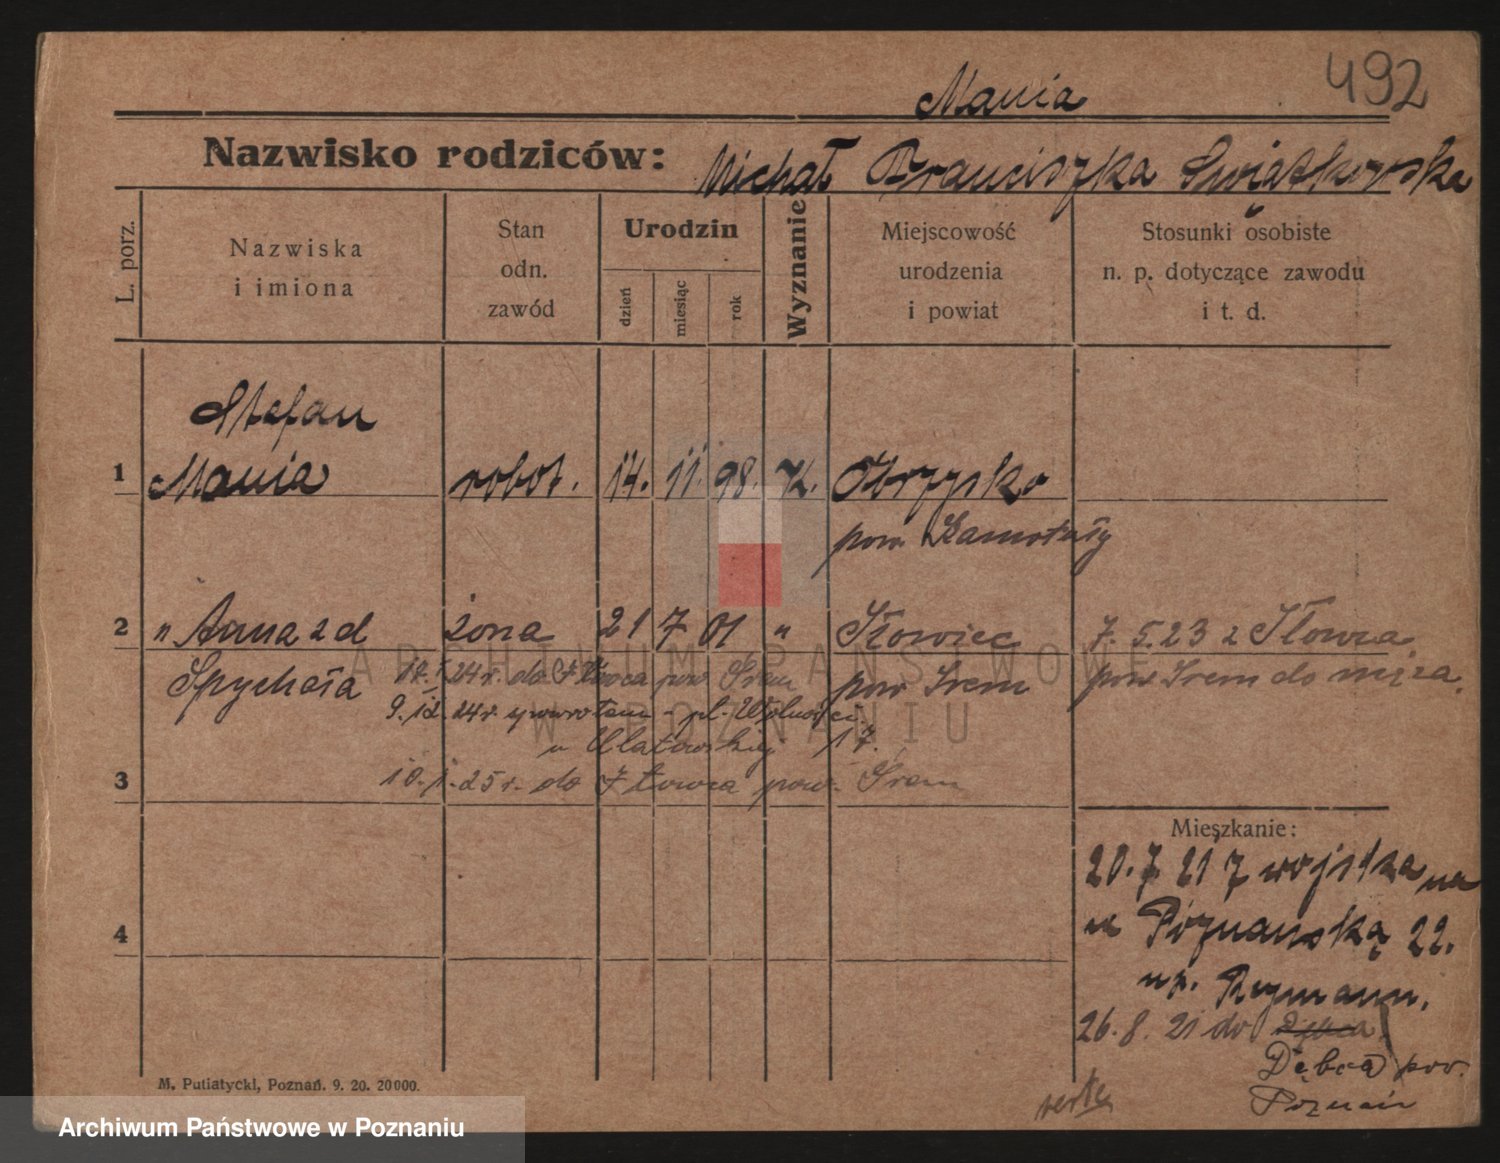 492
Mania
Nazwisko rodziców: Michał Franciszka Świątkowska
L. porz.
Nazwiska
i imiona
Stan
odn.
zawód
Urodzin
dzień
miesiąc
rok
Wyznanie
Miejscowość
urodzenia
i powiat
Stosunki osobiste
n. p. dotyczące zawodu
i t. d.
Stefan
1 Mania robot. 14. 11. 98. K. Obrzysko
pow. Szamotuły
2 " Anna z d żona 21 7 01 " Iłowiec 7. 5. 23 z Iłowca
Spychała pow Śrem pow. Śrem do męża.
24 r. do Iłowca pow Śrem
9. 12. 24 r. z powrotem - pl. Wolności
u 17.
3 10. 1. 25 r. do Iłowca pow. Śrem
Mieszkanie:
20. 7 21 z wojska na
Poznańską 22.
4
np. Reymann.
26. 8. 21 do
Dębca pow.
Poznań
verte
M. Putiatycki, Poznań. 9. 20. 20000.
ARCHIWUM PAŃSTWOWE
W POZNANIU
Archiwum Państwowe w Poznaniu